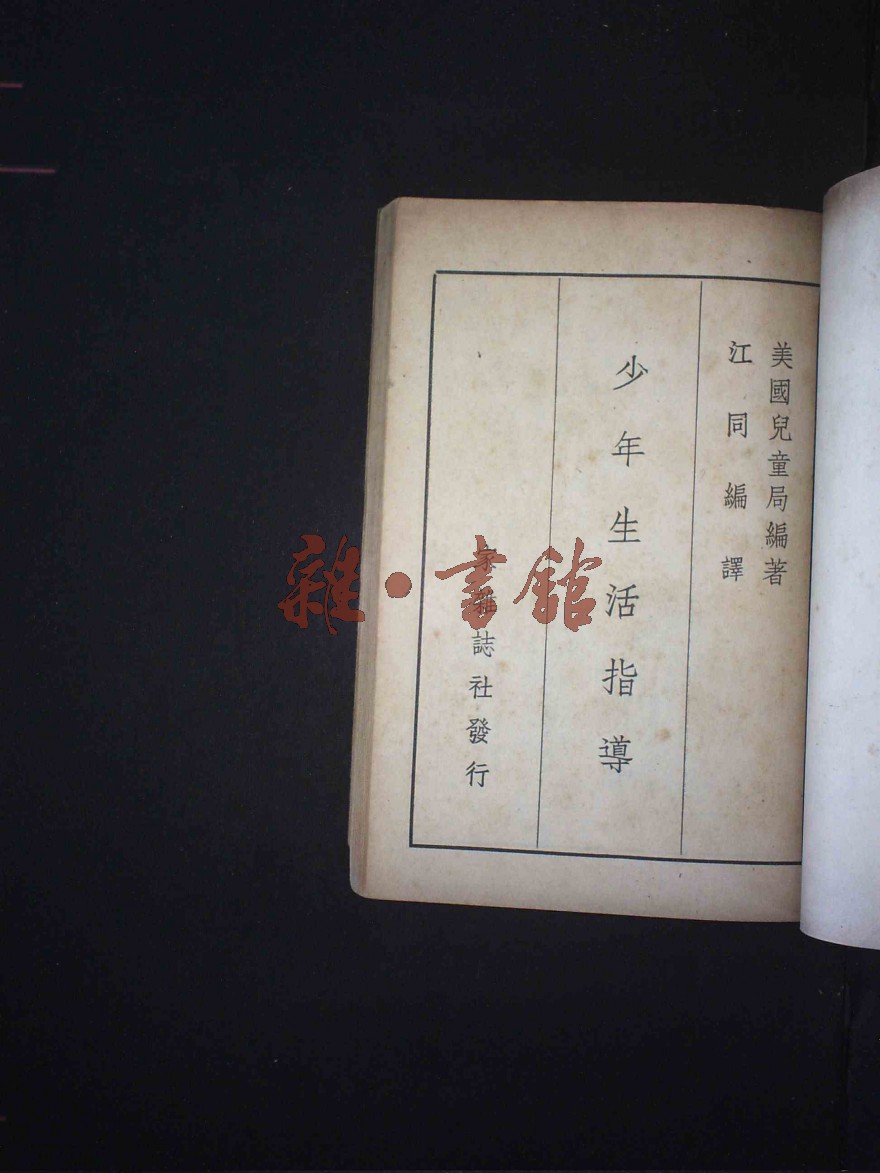 美國兒童局編著
江同編譯
少年生活指導
家雜誌社發行
雜·書館